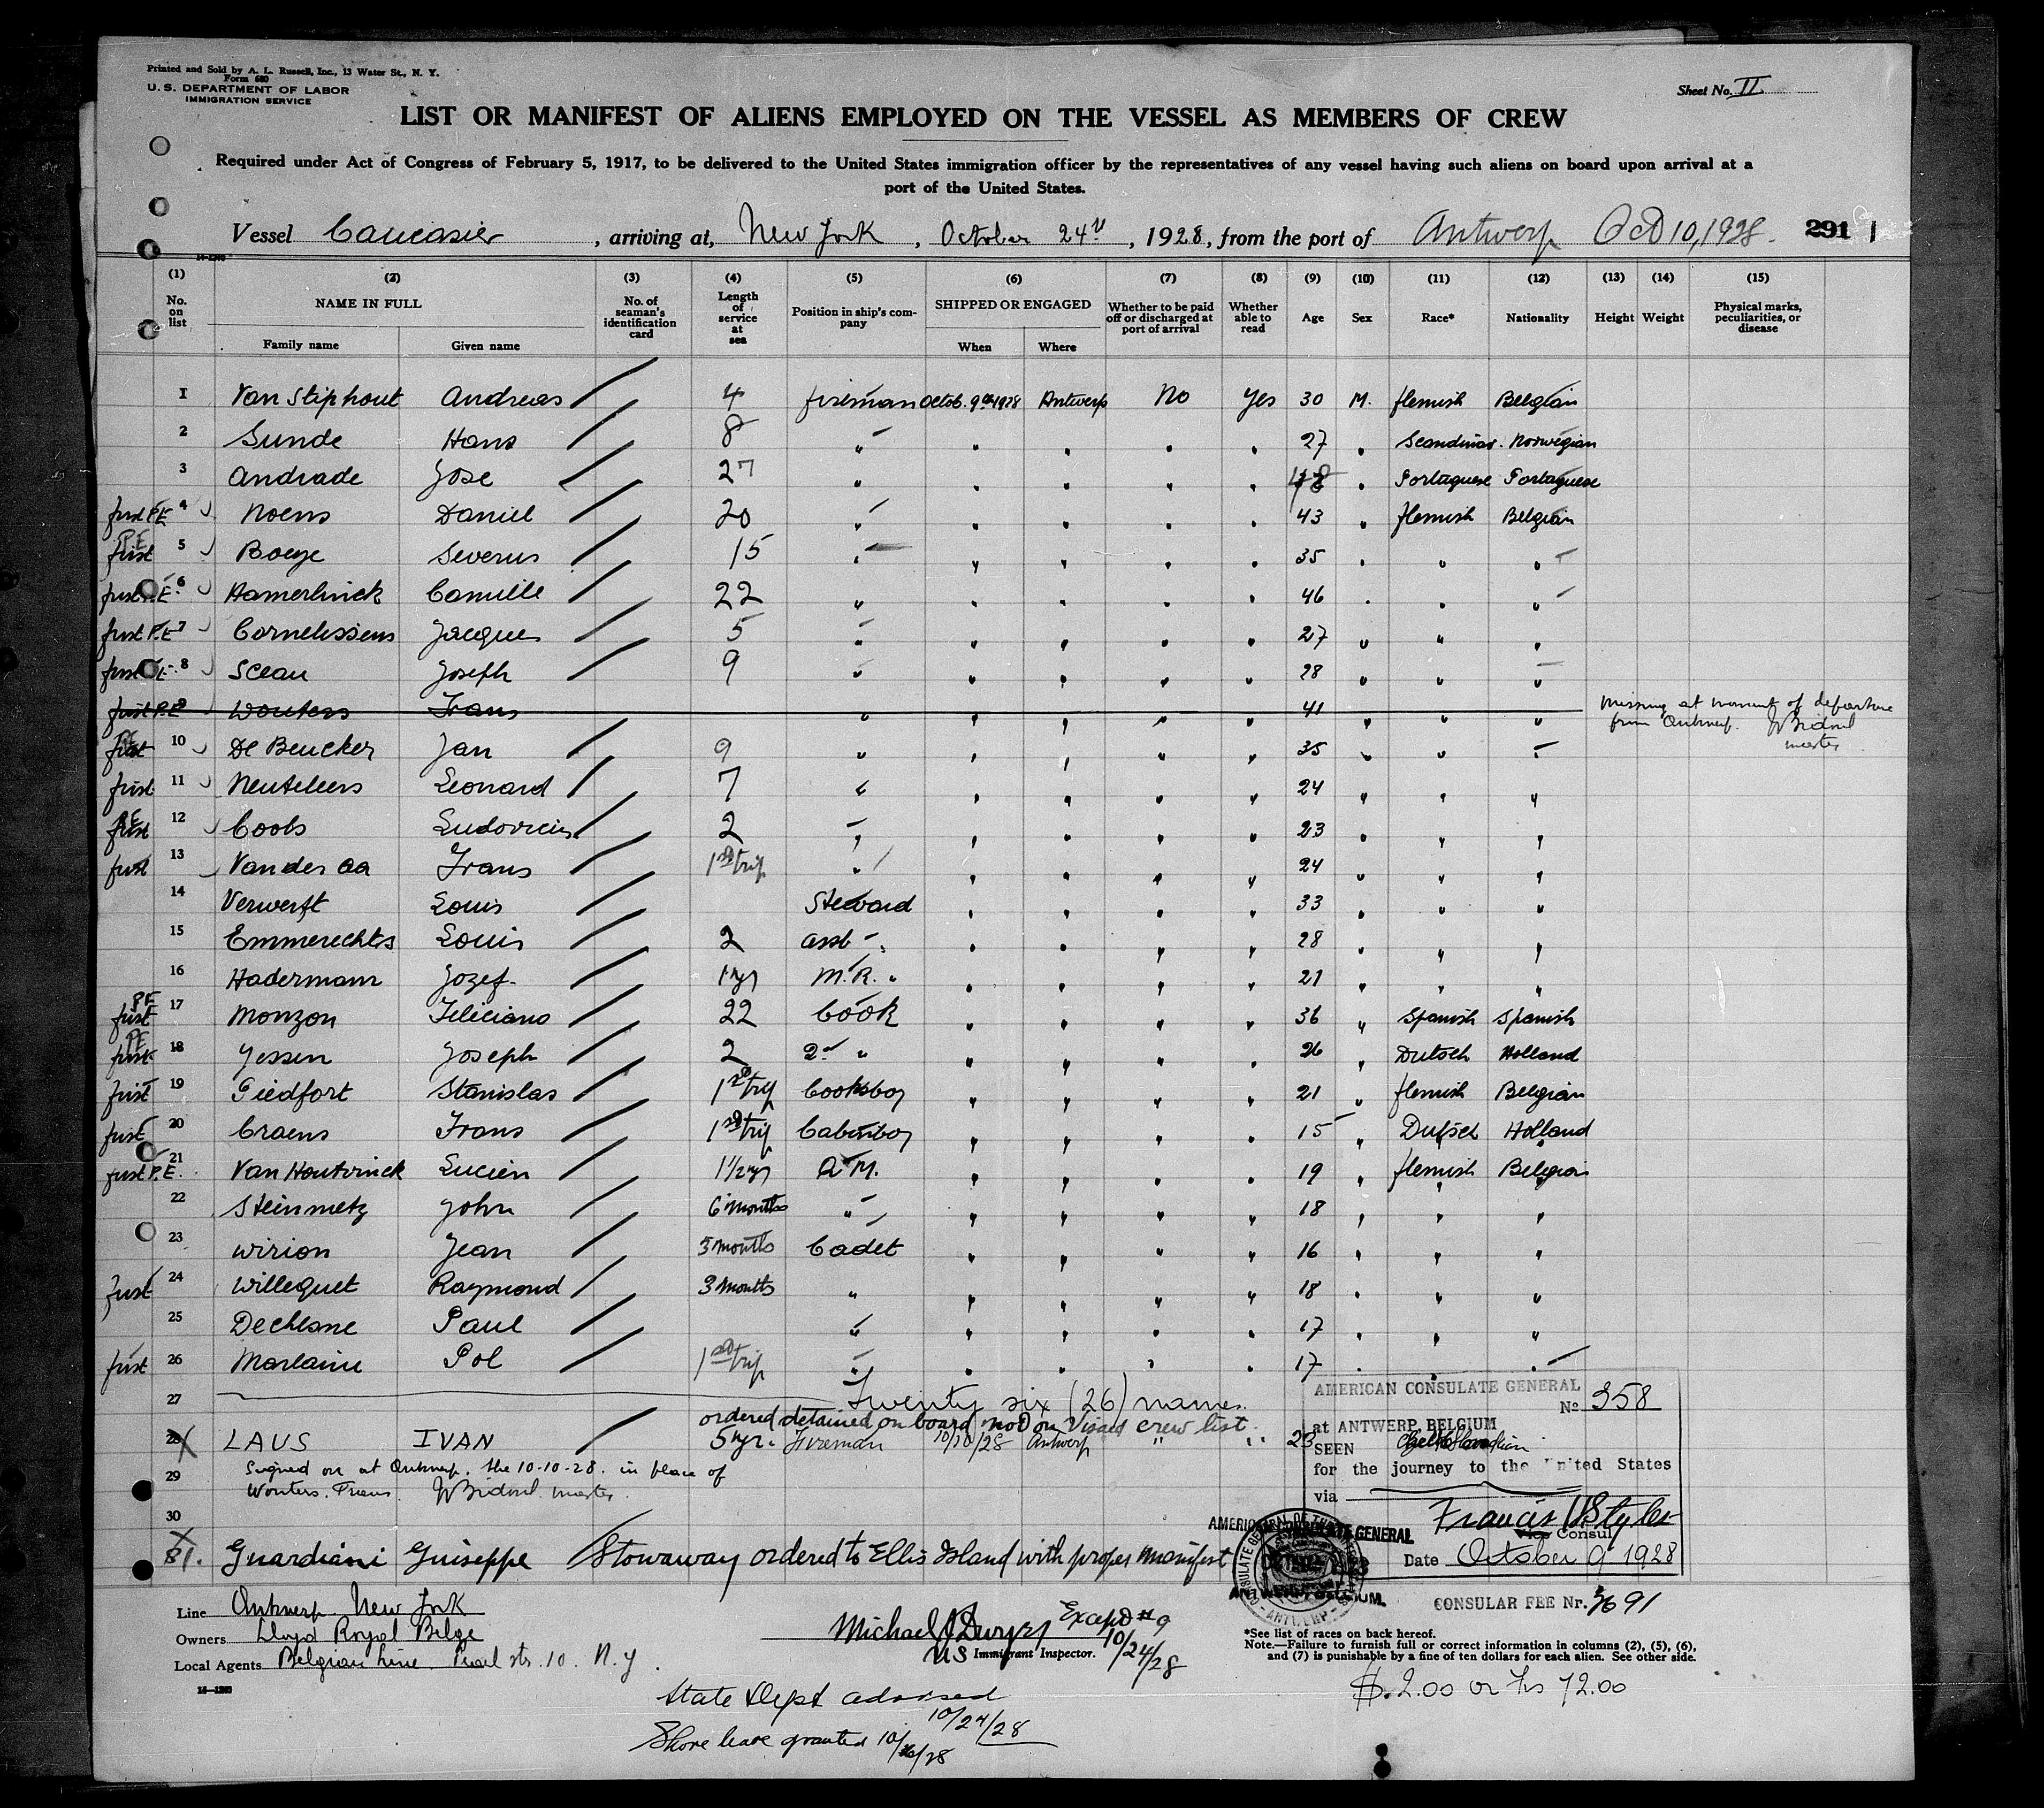 Printed and Sold by A. L. Russell, Inc., 13 Water St., N. Y.
Form 680
U. S. DEPARTMENT OF LABOR
IMMIGRATION SERVICE
Sheet No. II
LIST OR MANIFEST OF ALIENS EMPLOYED ON THE VESSEL AS MEMBERS OF CREW
Required under Act of Congress of February 5, 1917, to be delivered to the United States immigration officer by the representatives of any vessel having such aliens on board upon arrival at a
port of the United States.
Vessel Caucasier, arriving at, New York, October 24th, 1928, from the port of Antwerp Oct 10, 1928. 291
(1) (2) (3) (4) (5) (6) (7) (8) (9) (10) (11) (12) (13) (14) (15)
No. on list NAME IN FULL Family name Given name No. of seaman's identification card Length of service at sea Position in ship's company SHIPPED OR ENGAGED When Where Whether to be paid off or discharged at port of arrival Whether able to read Age Sex Race* Nationality Height Weight Physical marks, peculiarities, or disease
1 Van Stiphout Andreas 4 fireman Octob. 9th 1928 Antwerp No Yes 30 M. flemish Belgian
2 Sunde Hans 8 " " " " " 27 " Scandinav. Norwegian
3 Andrade Jose 27 " " " " " 48 " Portuguese Portuguese
first P.E 4 Noens Daniel 20 " " " " " 43 " flemish Belgian
first P.E 5 Boeye Severus 15 " " " " " 35 " " "
first P.E. 6 Hamerlinck Camille 22 " " " " " 46 " " "
first P.E 7 Cornelissens Jacques 5 " " " " " 27 " " "
first P.E. 8 Sceau Joseph 9 " " " " " 28 " " "
first P.E 9 Wouters Frans " " " " " 41 " " " Missing at moment of departure
from Antwerp. master
first P.E 10 De Beucker Jan 9 " " " " " 35 " " "
first 11 Neuteleers Leonard 7 " " " " " 24 " " "
first P.E 12 Cools Ludovicus 2 " " " " " 23 " " "
first 13 Van der aa Frans 1st trip " " " " " 24 " " "
14 Verwerft Louis Steward " " " " 33 " " "
15 Emmerechts Louis 2 asst " " " " " 28 " " "
16 Hadermann Jozef 1 yr M.R. " " " " " 21 " " "
first P.E 17 Monzon Feliciano 22 Cook " " " " 36 " Spanish Spanish
first P.E 18 Jessen Joseph 2 2d " " " " " 26 " Dutsch Holland
first 19 Piedfort Stanislas 1st trip Cooksboy " " " " 21 " flemish Belgian
first 20 Craens Frans 1st trip Cabinboy " " " " 15 " Dutsch Holland
first P.E. 21 Van Houtvinck Lucien 1 1/2 yr D.M. " " " " 19 " flemish Belgian
22 Steinmetz John 6 months " " " " " 18 " " "
23 Wirion Jean 3 months Cadet " " " " 16 " " "
first 24 Willequet Raymond 3 months " " " " " 18 " " "
25 Dechesne Paul " " " " " 17 " " "
first 26 Marlaine Pol 1st trip " " " " " 17 " " "
27 Twenty six (26) names.
ordered detained on board not on Visaed crew list
28 LAUS IVAN 5 yr. Fireman 10/10/28 Antwerp " " 23
29 Signed on at Antwerp. the 10-10-28. in place of
Wouters. Frans. master.
30
31. Guardiani Guiseppe Stowaway ordered to Ellis Island with proper manifest
AMERICAN CONSULATE GENERAL
No 358
at ANTWERP, BELGIUM
SEEN
for the journey to the United States
via
Francis H Styles
Vice Consul
Date October 9 1928
AMERICAN CONSULATE GENERAL
ANTWERP, BELGIUM.
CONSULAR FEE Nr. 3691
Line Antwerp New York
Owners Lloyd Royal Belge
Local Agents Belgian Line. Pearl str. 10. N.Y.
Michael J Dwyer Except #9
US Immigrant Inspector. 10/24/28
*See list of races on back hereof.
Note.—Failure to furnish full or correct information in columns (2), (5), (6),
and (7) is punishable by a fine of ten dollars for each alien. See other side.
14—1240
$.2.00 or frs 72.00
State Dept advised
10/24/28
Shore leave granted 10/26/28